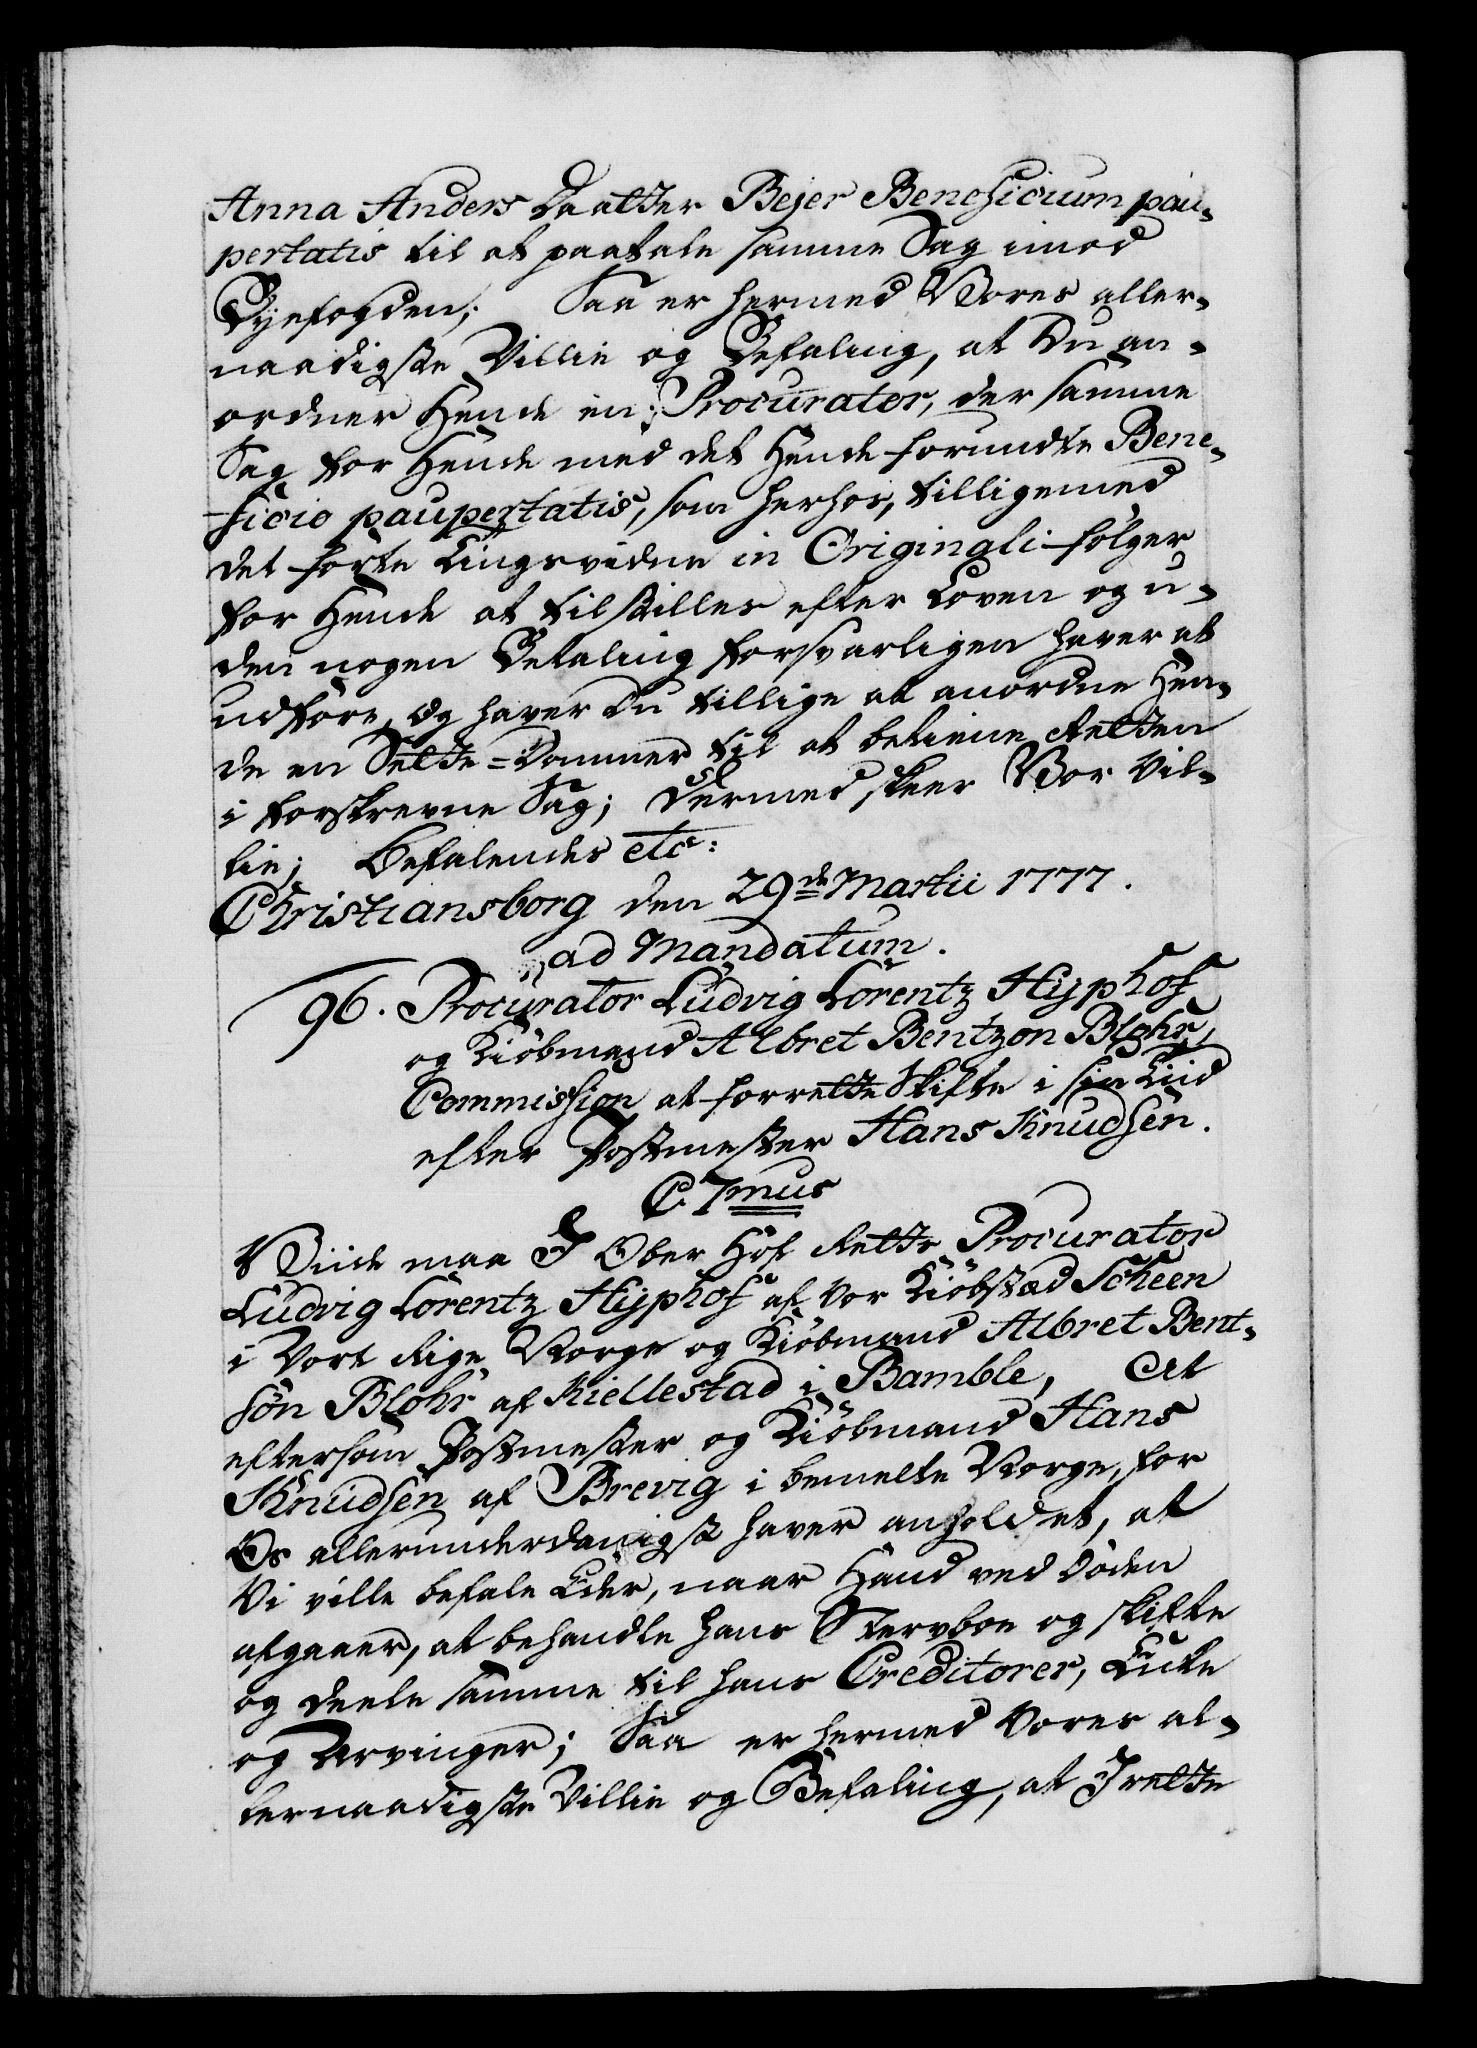 Anna Anders Daatter Bejer Beneficium pau-
pertatis til at paatale samme Sag imod
Byefogden; Saa er hermed Vores aller-
naadigste Villie og Befaling, at Du an-
ordner Hende en Procurator, der samme
Sag for Hende med det Hende forundte Bene-
ficio paupertatis, som herhos, tilligemed
det førte Tingsvidne in Originali følger
for Hende at tilstilles efter Loven og u-
den nogen Betaling forsvarligen haver at
udføre, Og haver Du tillige at anordne Hen-
de en Sette-Dommer til at betiene Retten
i forskrevne Sag; Dermed skeer Vor Vil-
lie; Befalendes etc:
Christiansborg den 29de Martii 1777.
ad Mandatum.
96. Procurator Ludvig Lorentz Hyphof
og Kiöbmand Albret Bentzon Blohr,
Commission at forrette Skifte i sin Tiid
efter Postmester Hans Knudsen.
C. 7mus
Viide maa I Ober Hof Rette Procurator
Ludvig Lorentz Hyphof af Vor Kiöbstæd Scheen
i Vort Rige Norge og Kiöbmand Albret Bent-
søn Blohr af Kiellestad i Bamble, At
eftersom Postmester og Kiöbmand Hans
Knudsen af Brevig i bemelte Norge, for
Os allerunderdanigst haver anholdet, at
Vi ville befale Eder, naar Hand ved Døden
afgaaer, at behandle hans Stervboe og skifte
og deele samme til hans Creditorer, Enke
og Arvinger; Saa er hermed Vores al-
lernaadigste Villie og Befaling, at I rette